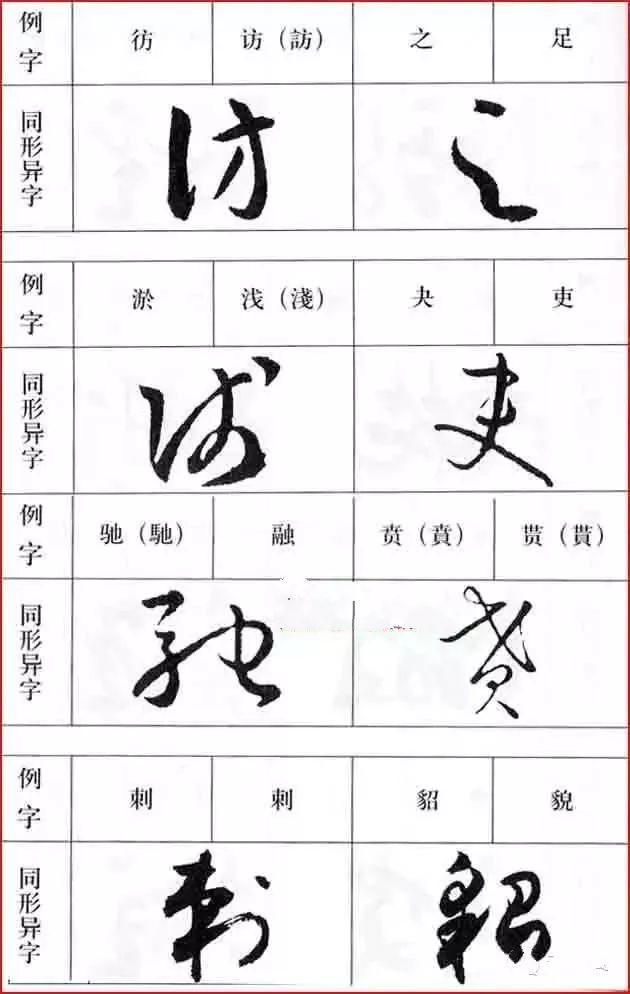 例字 彷 访（訪） 之 足
同形异字
例字 淤 浅（淺） 夬 吏
同形异字
例字 驰（馳） 融 贲（賁） 贳（貰）
同形异字
例字 刺 刺 貂 貌
同形异字